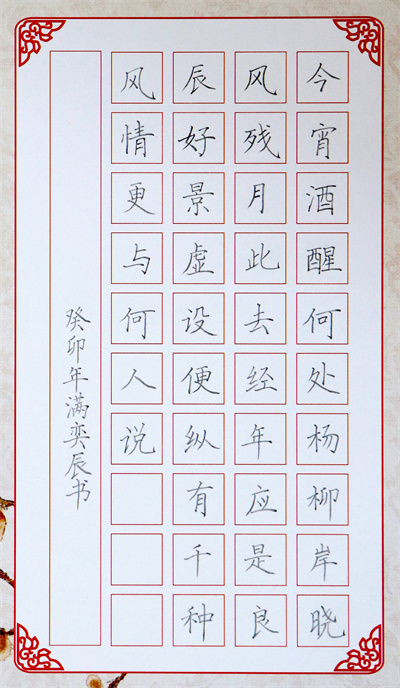 今宵酒醒何处杨柳岸晓
风残月此去经年应是良
辰好景虚设便纵有千种
风情更与何人说
癸卯年满奕辰书